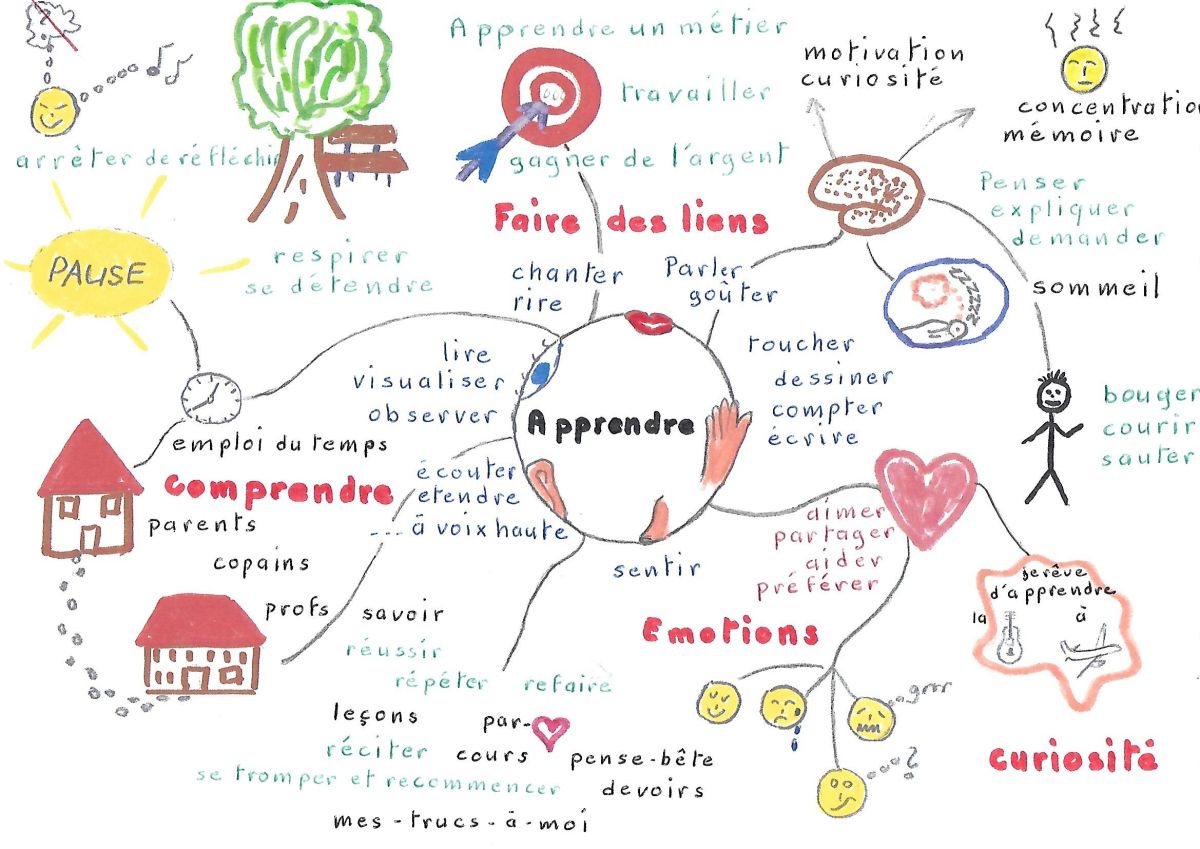 ?
Apprendre un métier
travailler
gagner de l'argent
motivation
curiosité
concentration
mémoire
arrêter de réfléchir
Penser
expliquer
demander
Faire des liens
PAUSE
respirer
se détendre
chanter
rire
Parler
goûter
zzzzz
sommeil
lire
visualiser
observer
toucher
dessiner
compter
écrire
Apprendre
bouger
courir
sauter
emploi du temps
comprendre
écouter
etendre
...à voix haute
parents
copains
profs
sentir
aimer
partager
aider
préférer
Emotions
je rêve
d'apprendre
la
à
savoir
réussir
répéter
refaire
leçons
par-
cours
réciter
pense-bête
se tromper et recommencer
devoirs
mes-trucs-à-moi
grrr
?
curiosité